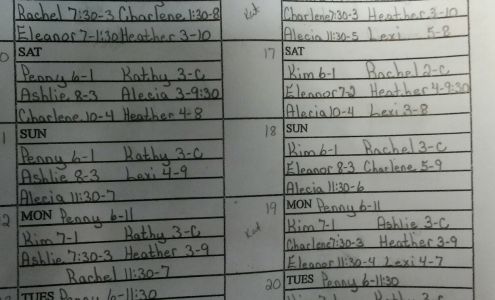 Rachel 7:30-3 Charlene 1:30-8
Eleanor 7-1:30 Heather 3-10
0 SAT
Penny 6-1 Kathy 3-C
Ashlie 8-3 Alecia 3-9:30
Charlene 10-4 Heather 4-8
1 SUN
Penny 6-1 Kathy 3-C
Ashlie 8-3 Lexi 4-9
Alecia 11:30-7
2 MON Penny 6-11
Kim 7-1 Kathy 3-C
Ashlie 7:30-3 Heather 3-9
Rachel 11:30-7
TUES Penny 6-11:30
Kat Charlene 7:30-3 Heather 3-10
Alecia 11:30-5 Lexi 5-8
17 SAT
Kim 6-1 Rachel 2-C
Eleanor 7-2 Heather 4-9:30
Alecia 10-4 Lexi 3-8
18 SUN
Kim 6-1 Rachel 3-C
Eleanor 8-3 Charlene 5-9
Alecia 11:30-6
19 MON Penny 6-11
Kat Kim 7-1 Ashlie 3-C
Charlene 7:30-3 Heather 3-9
Eleanor 11:30-4 Lexi 4-7
20 TUES Penny 6-11:30